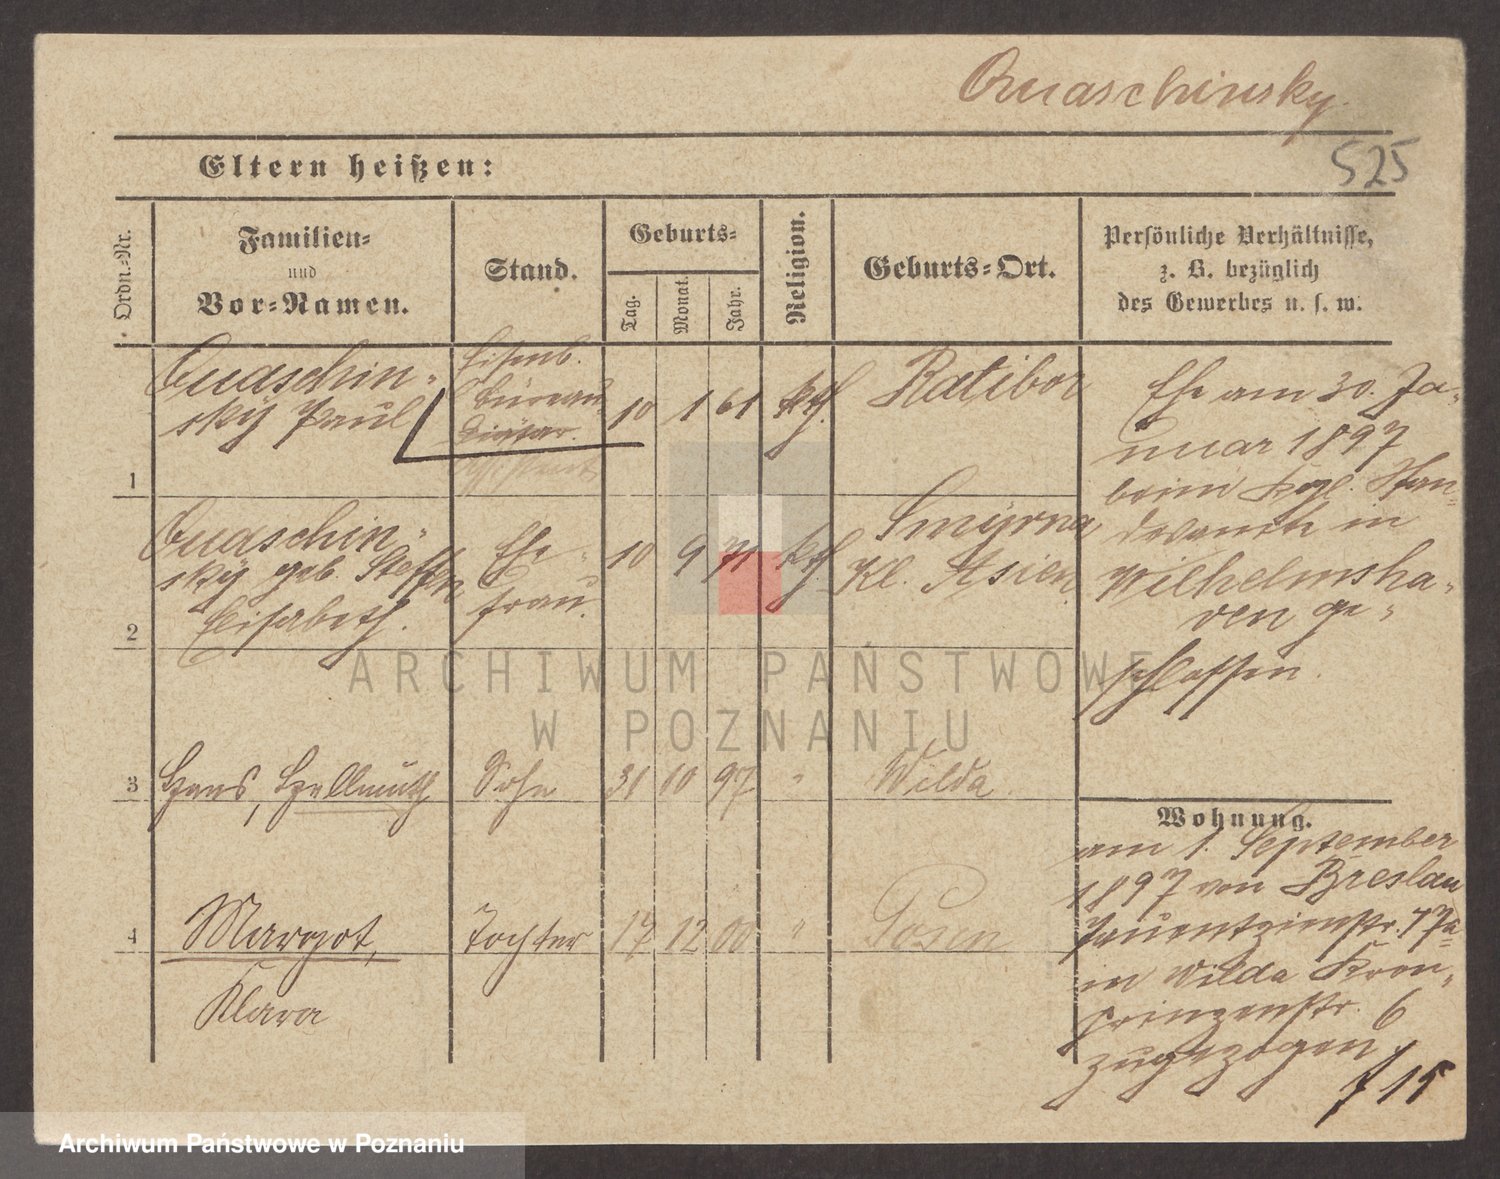 Quaschinsky.
525
Eltern heißen:
Ordn.-Nr.
Familien-
und
Vor-Namen.
Stand.
Geburts-
Tag.
Monat.
Jahr.
Religion.
Geburts-Ort.
Persönliche Verhältnisse,
z. B. bezüglich
des Gewerbes u. s. w.
1
Quaschin-
sky Paul
Eisenb.
Büreau
Diätar.
Assistent
10
1
61
kth.
Ratibor
Ehe am 30. Ja-
nuar 1897
beim Kgl. Stan-
desamte in
Wilhelmsha-
ven ge-
schlossen.
2
Quaschin-
sky geb. Steffen
Elisabeth.
Ehe-
frau.
10
9
71
kth.
Smyrna
Kl. Asien
3
Hans, Hellmuth
Sohn
31
10
97
"
Wilda.
4
Margot,
Klara
Tochter
17
12
00
"
Posen
Wohnung.
am 1. September
1897 von Breslau
Tauentzienstr. 77a
in Wilda Kron-
prinzenstr. 6
zugezogen
f 15
ARCHIWUM PAŃSTWOWE
W POZNANIU
Archiwum Państwowe w Poznaniu